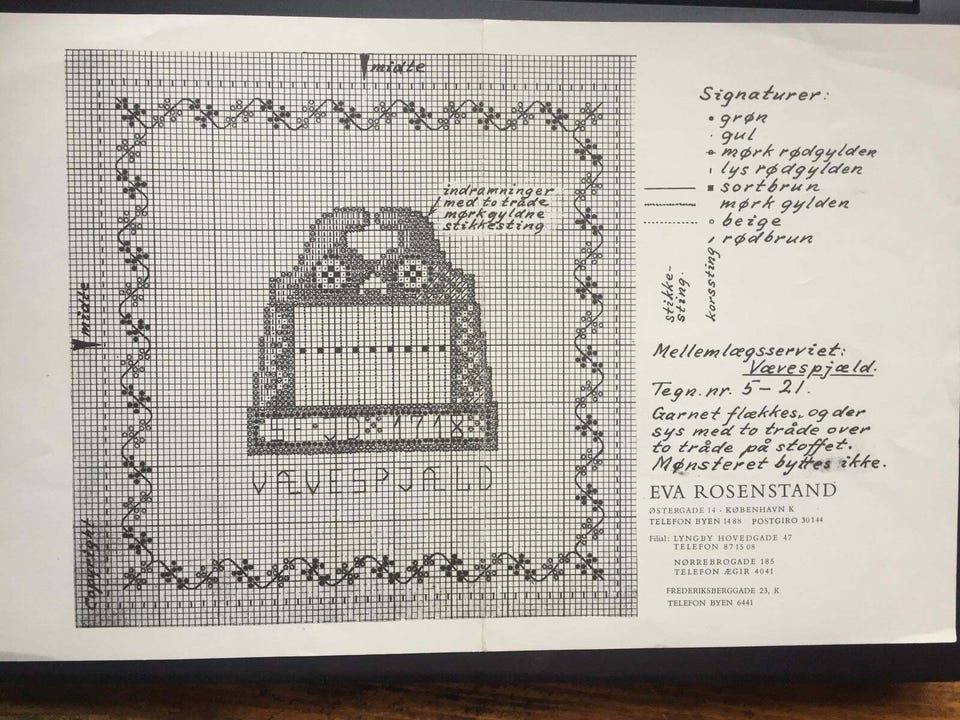 midte
midte
indramninger
med to tråde
mørk gyldne
stikkesting
VÆVESPJÆLD
Copyright
Signaturer:
grøn
gul
mørk rødgylden
lys rødgylden
sortbrun
mørk gylden
beige
rødbrun
stikke-
sting.
korssting
Mellemlægsserviet:
Vævespjæld.
Tegn. nr. 5-21.
Garnet flækkes, og der
sys med to tråde over
to tråde på stoffet.
Mønsteret byttes ikke.
EVA ROSENSTAND
ØSTERGADE 14 · KØBENHAVN K
TELEFON BYEN 1488 POSTGIRO 30144
Filial: LYNGBY HOVEDGADE 47
TELEFON 871508
NØRREBROGADE 185
TELEFON ÆGIR 4041
FREDERIKSBERGGADE 23, K
TELEFON BYEN 6441